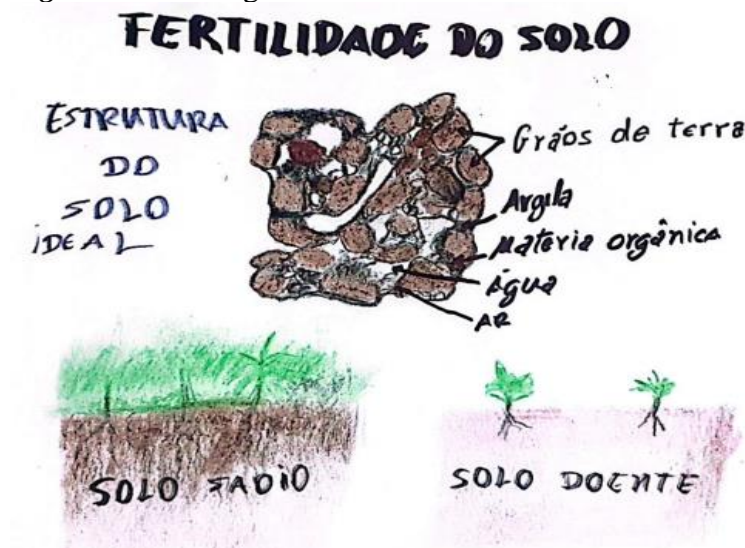 FERTILIDADE DO SOLO
ESTRUTURA
DO
SOLO
IDEAL
Grãos de terra
Argila
Materia orgânica
Água
AR
SOLO SADIO
SOLO DOENTE